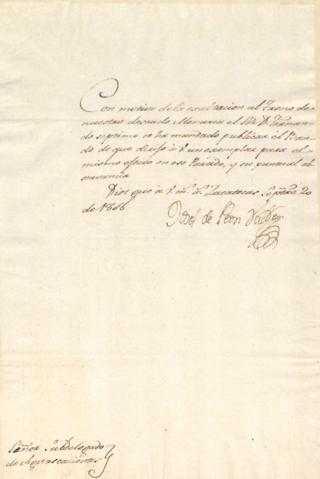 Con motivo de la exaltacion al Trono de
nuestro deseado Monarca el Sr. D. Fernan-
do septimo se ha mandado publicar el Ban-
do de que dirijo à V. un exemplar para el
mismo efecto en ese Partido, y su general ob-
servancia
Dios gue. à V. ms. as. Zacatecas Septre. 20
de 1808
de Leon Valdes
Señor Subdelegado
de Aguascalientes